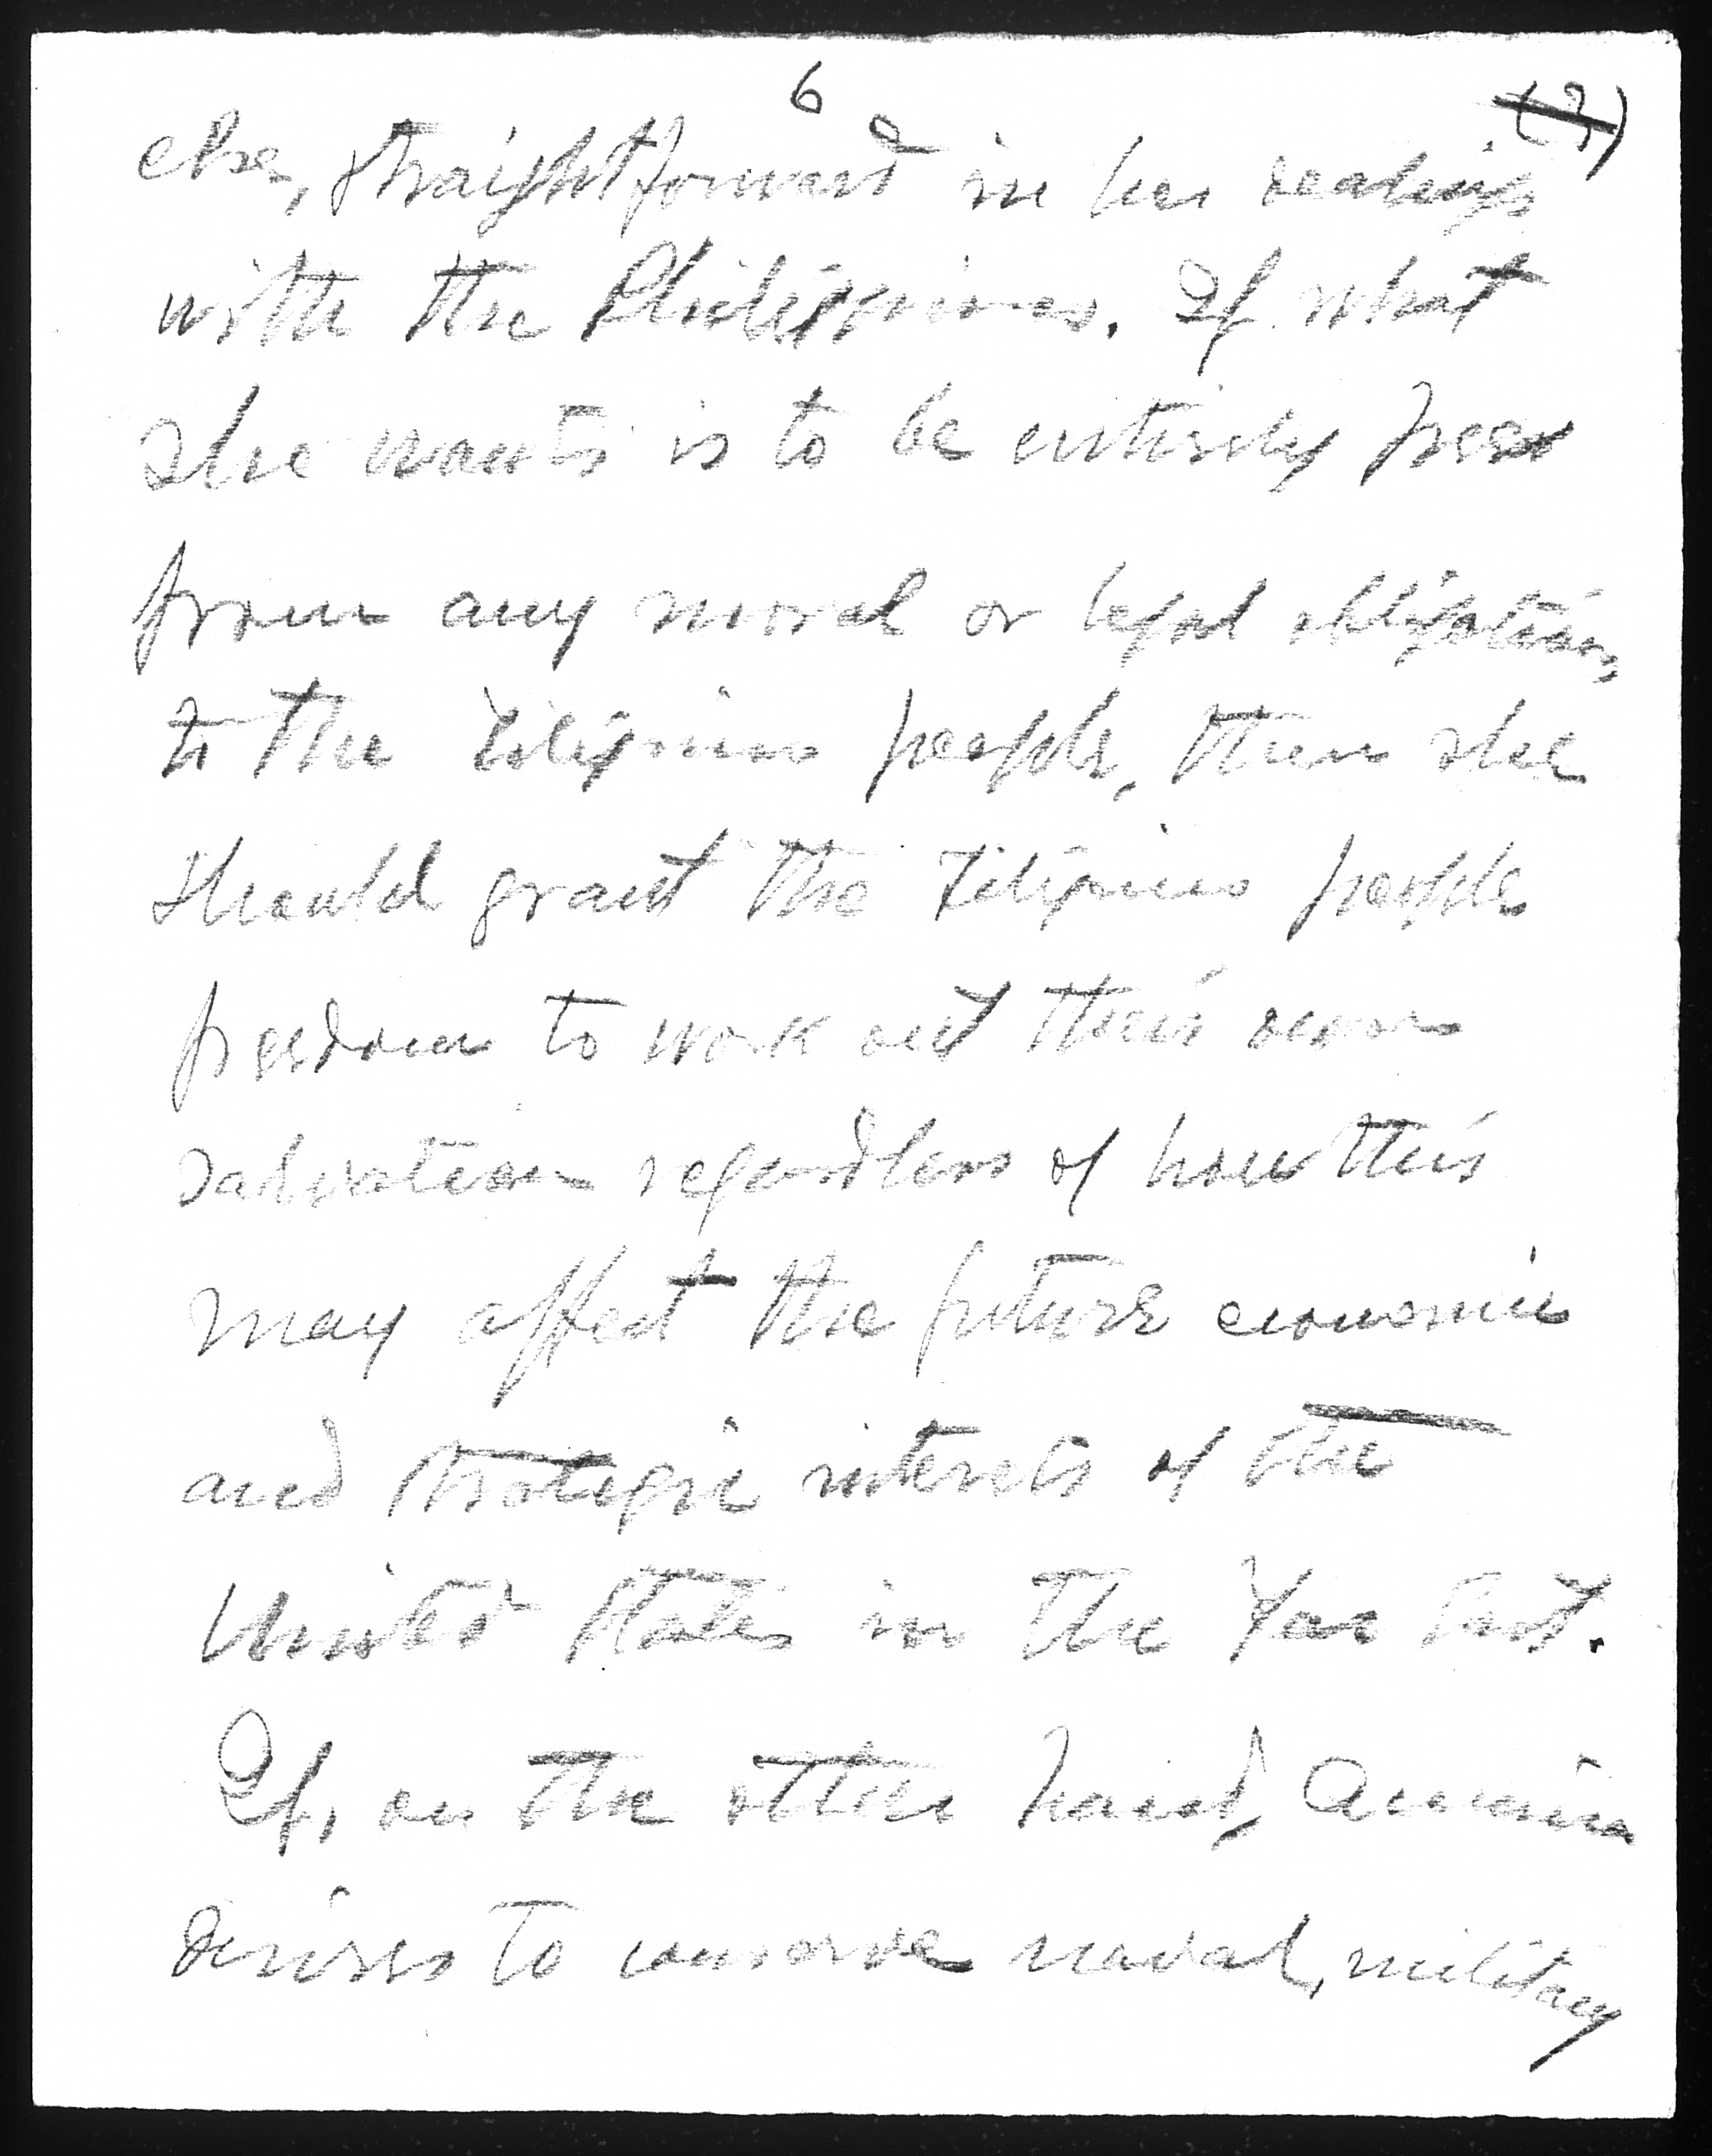 6 (3)
else, straightforward in her dealings
with the Philippines. If what
she wants is to be entirely free
from any moral or legal obligation,
to the Filipino people, then she
should grant the Filipino people
freedom to work out their own
salvation regardless of how this
may affect the future economic
and strategic interests of the
United States in the Far East.
If, on the other hand, America
desires to conserve naval, military